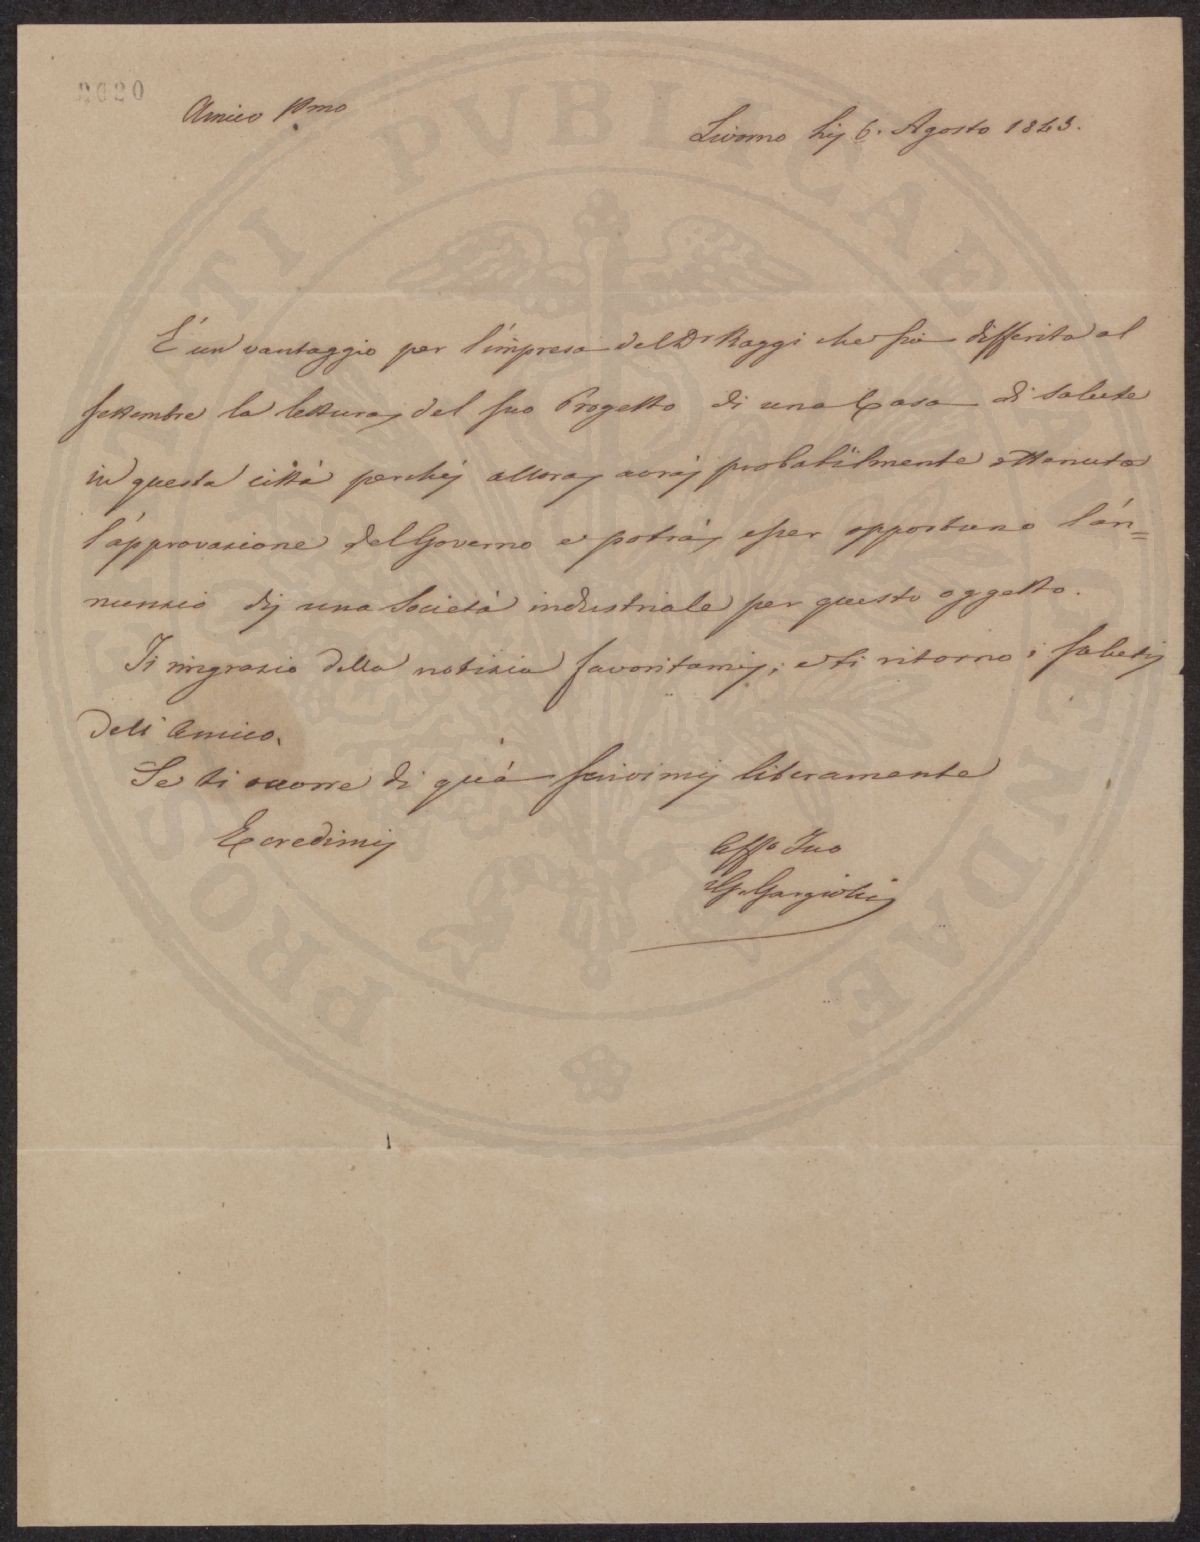 2020
Amico Pmo
Livorno li 6. Agosto 1843.
È un vantaggio per l'impresa del Dr Raggi che sia differita al
settembre la lettura del suo Progetto di una Casa di salute
in questa città perchè allora avrà probabilmente ottenuta
l'approvazione del Governo e potrà esser opportuno l'an=
nunzio di una Società industriale per questo oggetto.
Ti ringrazio della notizia favoritami; e ti ritorno i saluti
dell'Amico.
Se ti occorre di quà scrivimi liberamente
E credimi
Affo Tuo
G. Gargiolli
PROSPERITATI PVBLICAE AVGENDAE